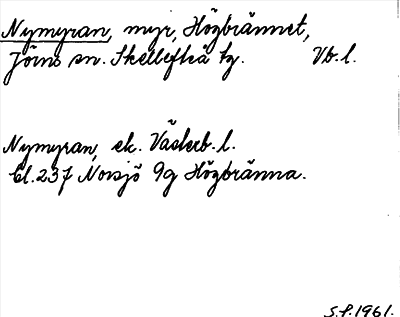 Nymyran, myr, Högbrännet,
Jörns sn. Skellefteå tg. Vb.l.
Nymyran, ek. Västerb.l.
Bl.237 Norsjö 9g Högbränna.
S.P.1961.